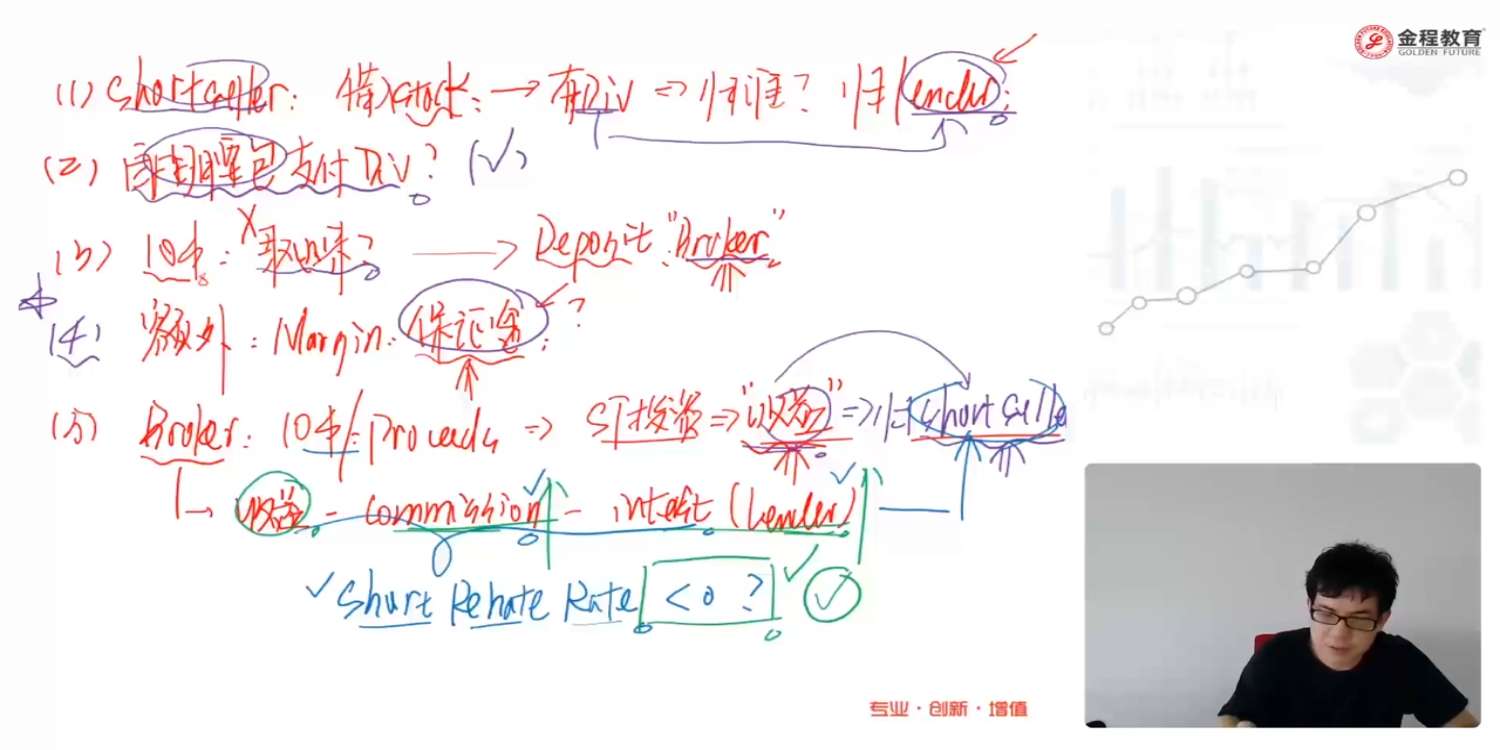 金程教育
GOLDEN FUTURE
(1) Shortseller: 借stock: → 有Div ⇒ 归谁? 归lender:
(2) 自用腰包支付Div? (√)
(3) 10中: 取回来? → Deposit "Broker"
(4) 额外: Margin: 保证金: ?
(5) Broker: 10中/proceeds ⇒ ST投资 ⇒ "收益" ⇒ 归short selle
↳ 收益 - commission - interest (Lender)
√ Short Rebate Rate < 0 ? √
专业·创新·增值